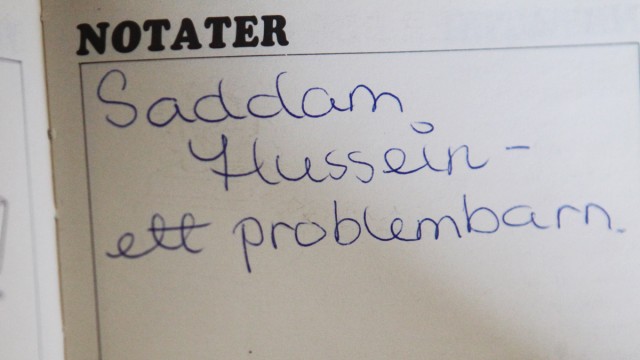 NOTATER
Saddam
Hussein -
ett problembarn.